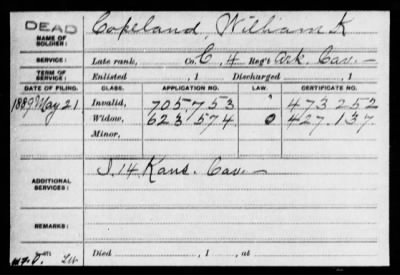 DEAD
NAME OF SOLDIER: Copeland, William K
SERVICE: Late rank, Co. C, 4 Reg't Ark. Cav.
TERM OF SERVICE: Enlisted , 1 Discharged , 1
DATE OF FILING. CLASS. APPLICATION NO. LAW. CERTIFICATE NO.
1889 May 21 Invalid, 705.753 473.252
Widow, 623.574 0 427.137
Minor,
ADDITIONAL SERVICES: I. 14. Kans. Cav.
REMARKS:
Died , 1 , at